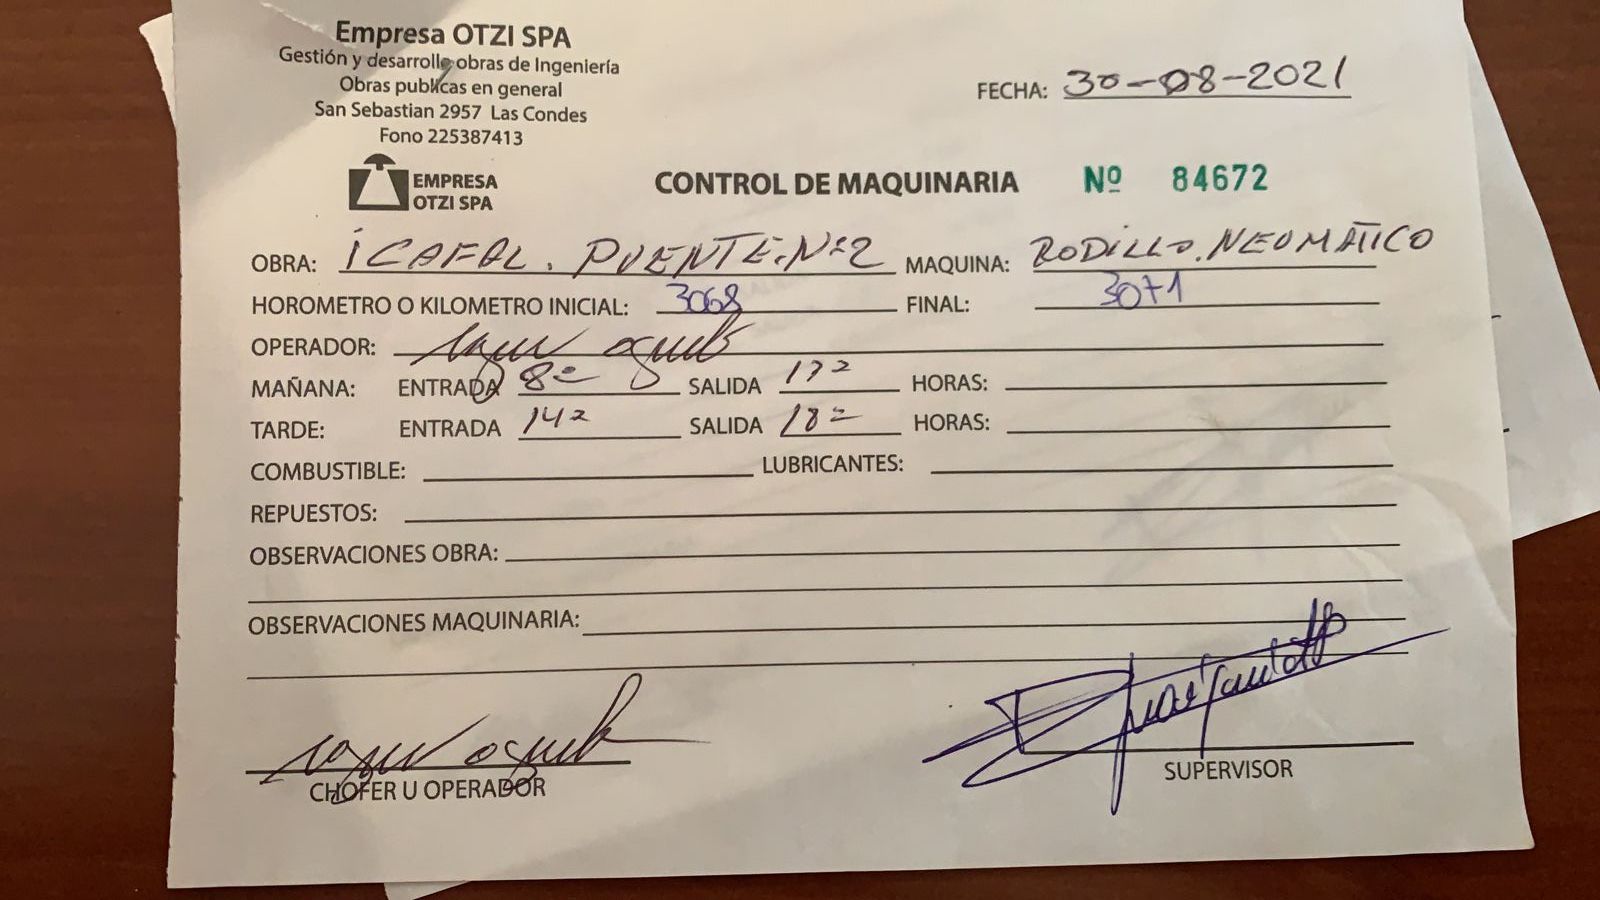 Empresa OTZI SPA
Gestión y desarrollo obras de Ingeniería
Obras publicas en general
San Sebastian 2957 Las Condes
Fono 225387413
EMPRESA
OTZI SPA
FECHA: 30-08-2021
CONTROL DE MAQUINARIA Nº 84672
OBRA: ICAFAL. PUENTE. Nº2 MAQUINA: RODILLO. NEUMÁTICO
HOROMETRO O KILOMETRO INICIAL: 3068 FINAL: 3071
OPERADOR:
MAÑANA: ENTRADA 8º SALIDA HORAS:
TARDE: ENTRADA 14º SALIDA 18º HORAS:
COMBUSTIBLE: LUBRICANTES:
REPUESTOS:
OBSERVACIONES OBRA:
OBSERVACIONES MAQUINARIA:
CHOFER U OPERADOR
SUPERVISOR